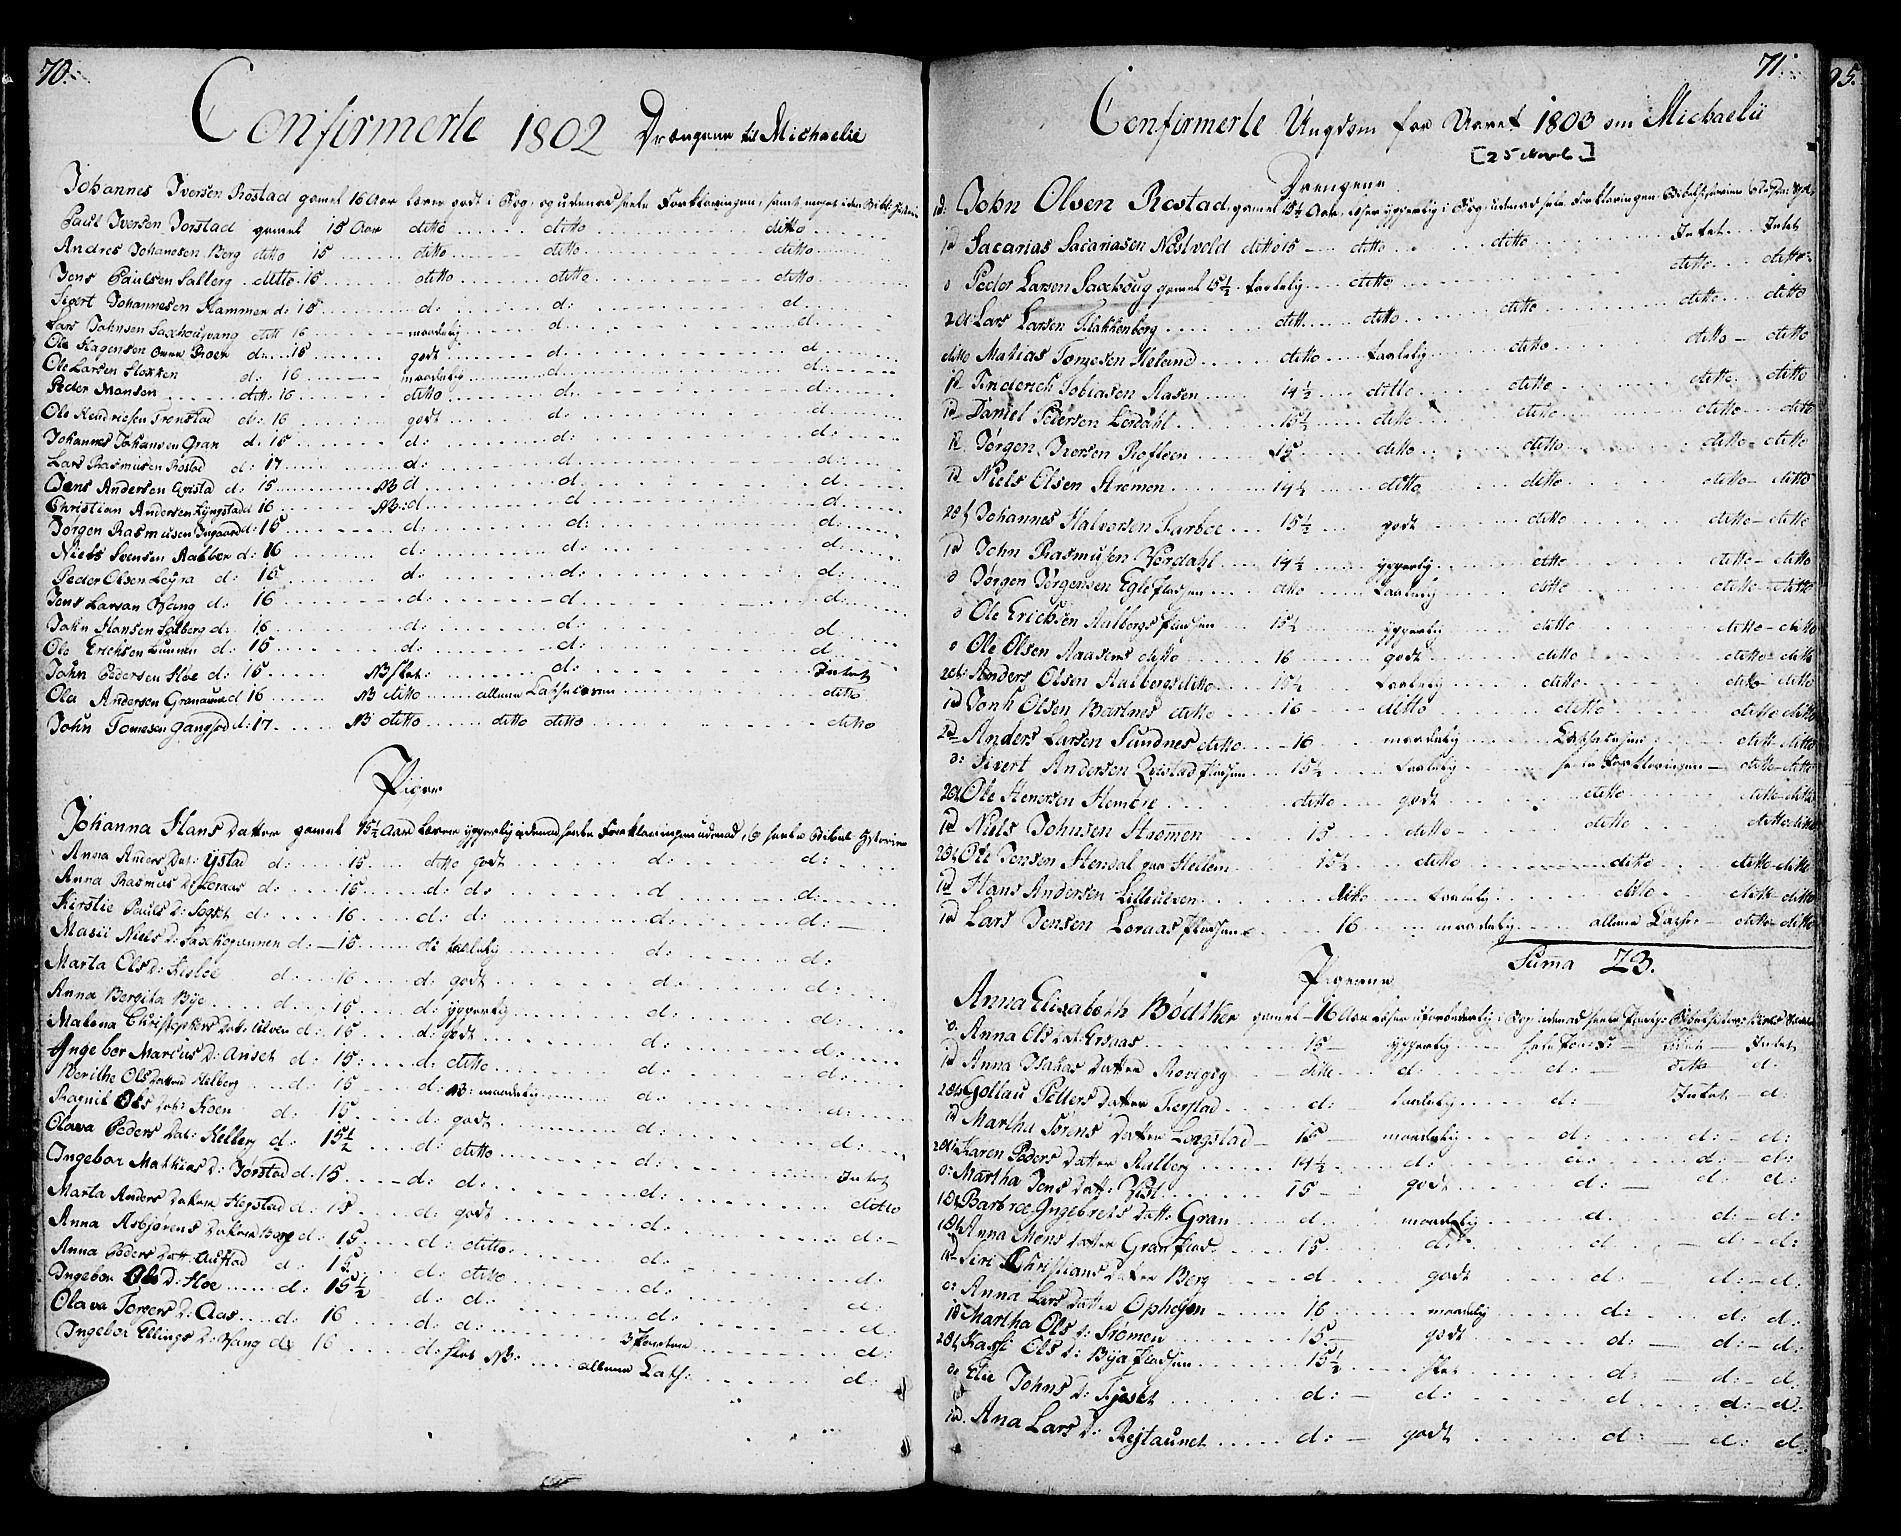 70.
Confirmerte 1802 Drængene til Michaelii
Johannes Iversen Rostad gamel 16 Aar læser godt i Bog, og udenad heele Forklaringen, samt noget i den Bibl: Historie
Paul Iversen Jorstad gamel 15 Aar ditto ditto ditto
Andres Johanesen Berg ditto 15 ditto ditto ditto
Jens Paulsen Salberg ditto 15 ditto ditto ditto
Sivert Johannesen Hammer d: 15 d: d: d.
Lars Johnsen Saxhougvang ditt 16 maadelig d: d:
Ole Hagensen Roen d: 15 godt d: d:
Ole Larsen Floxken d: 16 maadelig d: d:
Peder Mansen ditt: 16 ditto d: d:
Ole Hendricsen Tronstad d: 16 godt d: d
Johannes Johansen Gran d: 15 d: d: d:
Lars Rasmusen Rostad d: 17 d: d d:
Jens Andersen Qvistad d: 15 NB d d: d:
Christian Andersen Lyngstad d 16 NB: d d d:
Jørgen Rasmusen d: 15 d: d: d:
Niels Svensen Aalberg d: 16 d: d: d:
Peder Olsen Leyra d: 15 d: d: d:
Jens Larsen Wang d: 16 d: d d:
John Hansen Salberg d: 16 d: d: d
Ole Erichsen Lunnen d: 15 d: d: d
John Pedersen Hoe d: 15 NB slet: d: Intet
Ole Andersen Granaune d 16 NB ditto allene Cathechismen ditto
John Tomesen Gangstad d: 17 NB ditto ditto ditto ditto
Piger
Johanna Hans datter gamel 15½ Aar læser ypperlig udenad heele Forklaringen udenad, og heele Bibels Historien
Anna Anders Dat: Ystad d: 15 ditto godt d: d:
Anna Rasmus D: Loraas d: 15 d: d: d d:
Kirstie Pauls D: Sogset d: 16 d: d: d: d:
Marit Niels D: Saxhogaunen d: 15 d: taalelig d: d:
Marta Ols D: Kisloe d: 16 d: godt d: d:
Anna Bergita Bye d: 15 d: ypperlig d: d:
Malena Christophers Dat: Lilven d: 15 d: godt d: d:
Ingebor Marcus D: Anset d: 15: d: ditto d: d:
Berithe Ols Datter Helberg d: 15 d: NB: maadelig d:
Ragnil Ols Dat: Koen d: 15 d: godt d: d:
Olava Peders Dat: Helberg d: 15½ d: ditto d: d:
Ingebor Mathias D: Jørstad d: 15 d: d: d: Intet
Marta Anders Datter Hegstad d: 15 d: godt d: ditto
Anna Asbjørens Datter Berg d: 15 d: ditto d: d:
Anna Peders Datt: Austad d: 15 d: ditto d: d:
Ingebor Ols D: Hoe d: 15½ d: d: d: d:
Olava Torgers D: Aas d: 16 d: d: d:
Ingebor Ellings D: Wang d: 16 d: slet NB: allene Cath: d:
71.
Confirmerte Ungdom for Aaret 1803 om Michaelii
[25 Novb]
Drengene
1d: John Olsen Rostad, gamel 15½ Aar, læser ypperlig i Bog, udenad hele Forklaringen
1d Sacarias Sacariasen Nøstvold ditto 15 ditto ditto Intet Intet
d Peder Larsen Saxhoug gamel 15½ taalelig ditto ditto ditto
2dt Lars Larsen Flakkenberg ditt ditto ditto ditto ditto
ditto Matias Tomesen Heland ditto taalelig ditto ditto ditto
1d Friderich Tobiasen Aasen 14½ ditto ditto ditto ditto
1d Daniel Pedersen Lordahl 15½ ditto ditto ditto ditto
1d Jørgen Iversen Rofleen 15 ditto ditto ditto ditto
1d Niels Olsen Strømen 14½ ditto ditto ditto ditto
2dt Johannes Halvorsen Farboe 15½ godt ditto ditto ditto
1d John Rasmusen Wordahl 14½ ypperlig ditto ditto ditto
d Jørgen Jørgensen Egle pladsen ditto taalelig ditto ditto ditto
d Ole Erichsen Aalbergs pladsen 15½ ypperlig ditto ditto ditto
d Ole Olsen Aaasens ditto 16 godt ditto ditto ditto
2dt Anders Olsen Aalberes ditto 15½ taalelig ditto ditto ditto
1d Jonh Olsen Bartnes ditto 16 ditto ditto ditto ditto
2d Anders Larsen Sundnes ditto 16 maadelig ditto ditto
d: Sivert Andersen Qvistad pladsen 15½ taalelig hele Forklaringen ditto ditto
2dt Ole Stenersen Hembre ditto godt ditto ditto ditto
1d Niels Johnsen Strømen 15 ditto ditto ditto ditto
2dt Ole Jensen Stendal paa Hellem 15½ ditto ditto ditto ditto
1d Hans Andersen Lilleulven ditto taalelig ditto ditto ditto
1d Lars Jensen Loraas pladsen 16 maadelig allene Cathe: ditto ditto
Suma 23.
Pigerne
Anna Elisabeth Bødtker gamel 16 Aar læser
d: Anna Ols Dat: Ersaas 15 ypperlig hele Forkl: Intet Intet
1d Anna Isaaas Datter Rovigsg ditto d: d: ditto d:
2dt Gollau Petters Datter Fierstad d: taalelig d: Intet d:
1d Martha Sørens Datter Longstad 15 maadelig d: d: d:
2dt Karen Peders Datter Aalberg 14½ d: d: d: d:
d: Martha Jens Datt: Vist 15 godt d: d: d:
1dt Barbroe Ingebrets Datt: Gran d: maadelig d: d: d:
1dt Anna Mons Datter Gran plads 15 d: d d: d:
1d Siri Christians Datter Berg d godt d: d: d:
d: Anna Lars Datter Ophogen 16 maadelig d: d: d:
1d Martha Ols D: Strømen 15 godt d: d: d:
2dt Karsti Ols D: Bya pladsen 15½ slet d: d: d:
d: Elie Johns D: Tyeset d: d: d d: d:
1d. Ana Lars D: Rejtaunet d: godt d: d: d:
95.